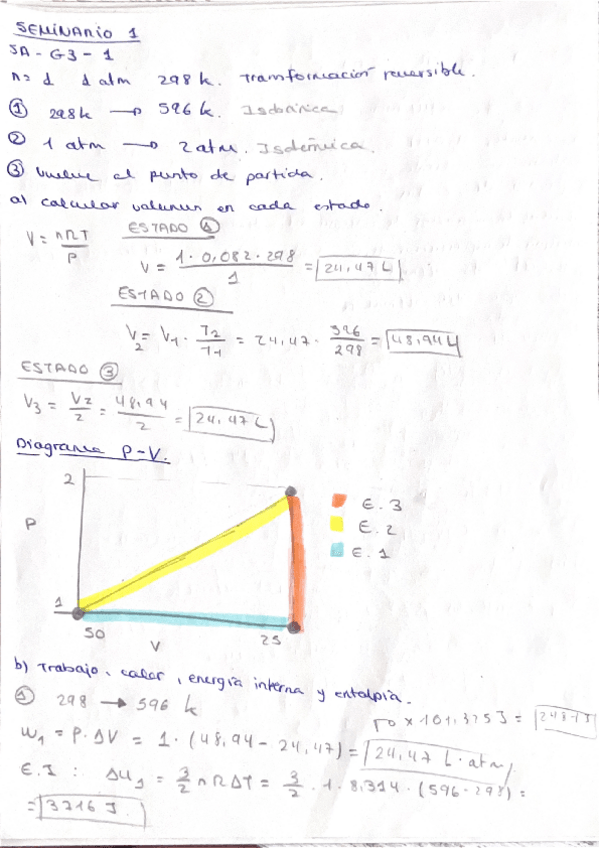 SEMINARIO 1
SA - G3 - 1
n= 1 1 atm 298 k. Transformación reversible.
① 298k → 596 k. Isobárica
② 1 atm → 2 atm. Isotérmica.
③ Vuelve al punto de partida.
a) calcular volumen en cada estado.
V = nRT / P
ESTADO ①
V = 1 · 0,082 · 298 / 1 = 24,47 L
ESTADO ②
V2 = V1 · T2 / T1 = 24,47 · 596 / 298 = 48,94 L
ESTADO ③
V3 = V2 / 2 = 48,94 / 2 = 24,47 L
Diagrama P-V.
2
P
1
50
V
25
E. 3
E. 2
E. 1
b) Trabajo, calor, energía interna y entalpía.
① 298 → 596 k
x 101,325 J =
W1 = P. ΔV = 1 · (48,94 - 24,47) = 24,47 L · atm
E.I : ΔU1 = 3/2 nRΔT = 3/2 · 1 · 8,314 · (596 - 298) =
= 3716 J.